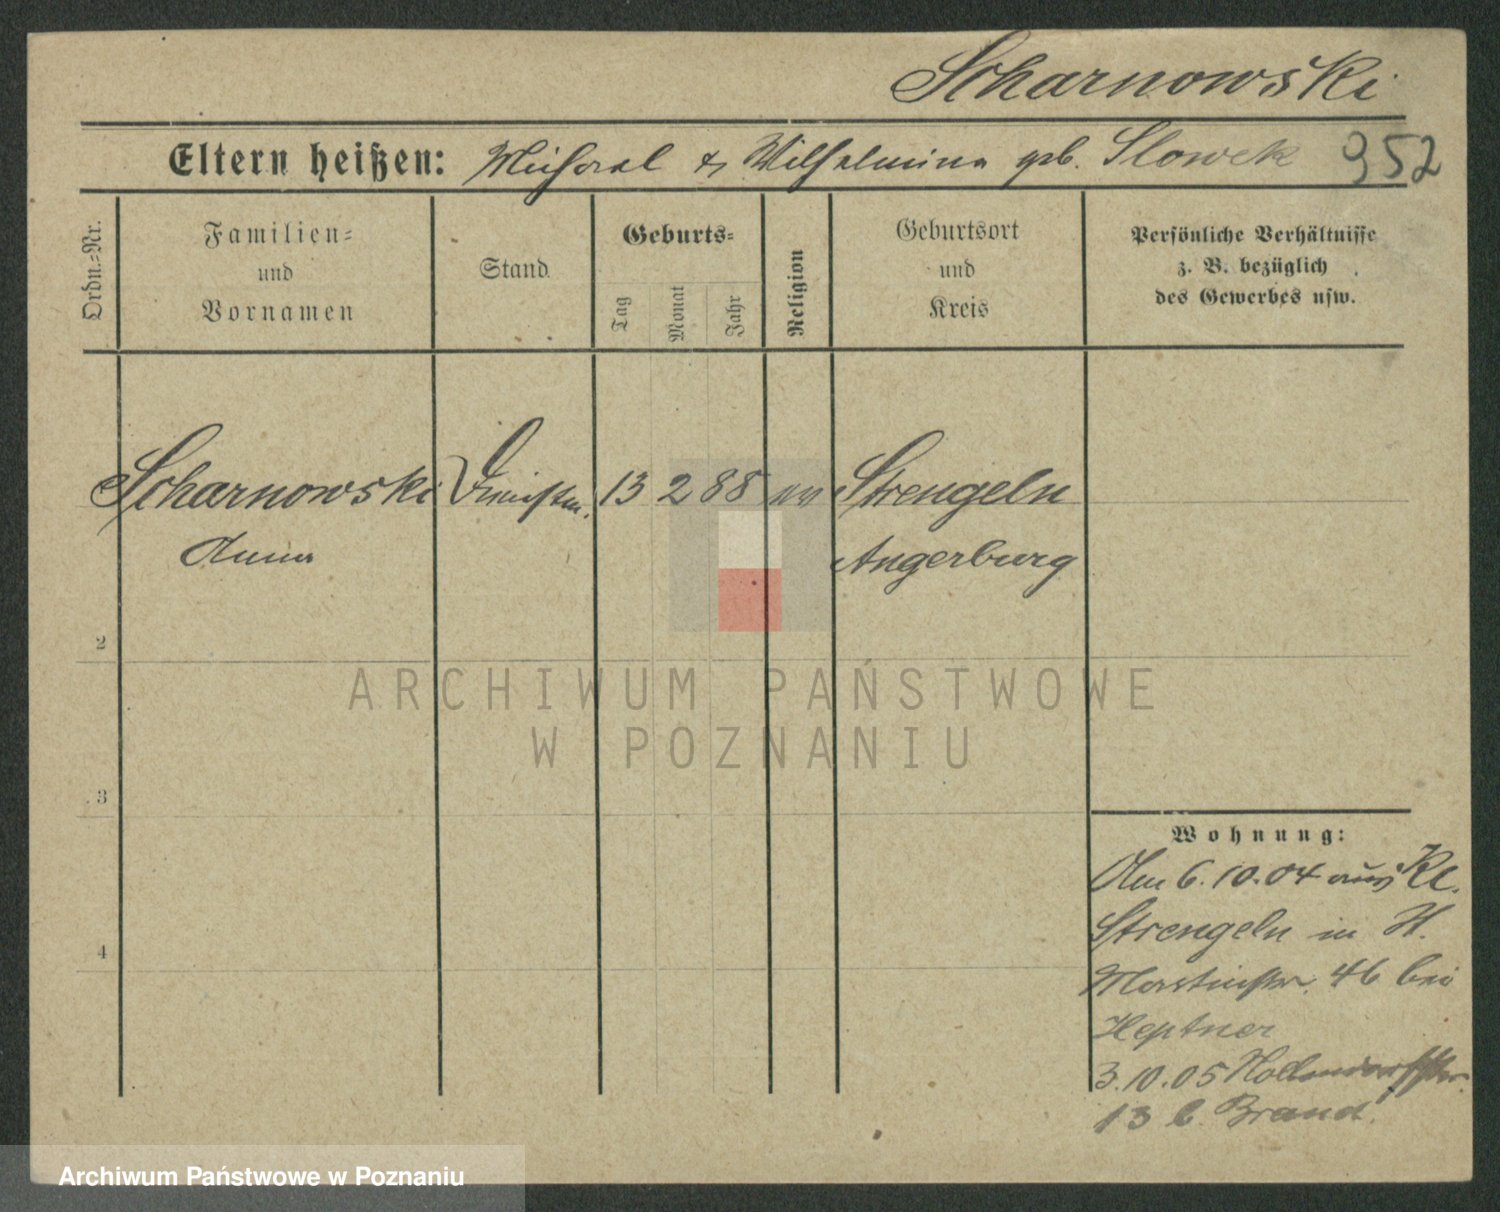 Scharnowski
Eltern heißen: Michael & Wilhelmine geb. Slowek 952
Ordn.=Nr.
Familien=
und
Vornamen
Stand
Geburts=
Tag
Monat
Jahr
Religion
Geburtsort
und
Kreis
Persönliche Verhältnisse
z. B. bezüglich
des Gewerbes usw.
Scharnowski Dienstm. 13 2 88 ev Strengeln
Anna Angerburg
2
3
4
ARCHIWUM PAŃSTWOWE
W POZNANIU
Wohnung:
Am 6.10.04 aus Kl.
Strengeln in H.
Martinstr. 46 bei
Heptner
3.10.05 Hohendorffstr.
13 b. Brand.
Archiwum Państwowe w Poznaniu